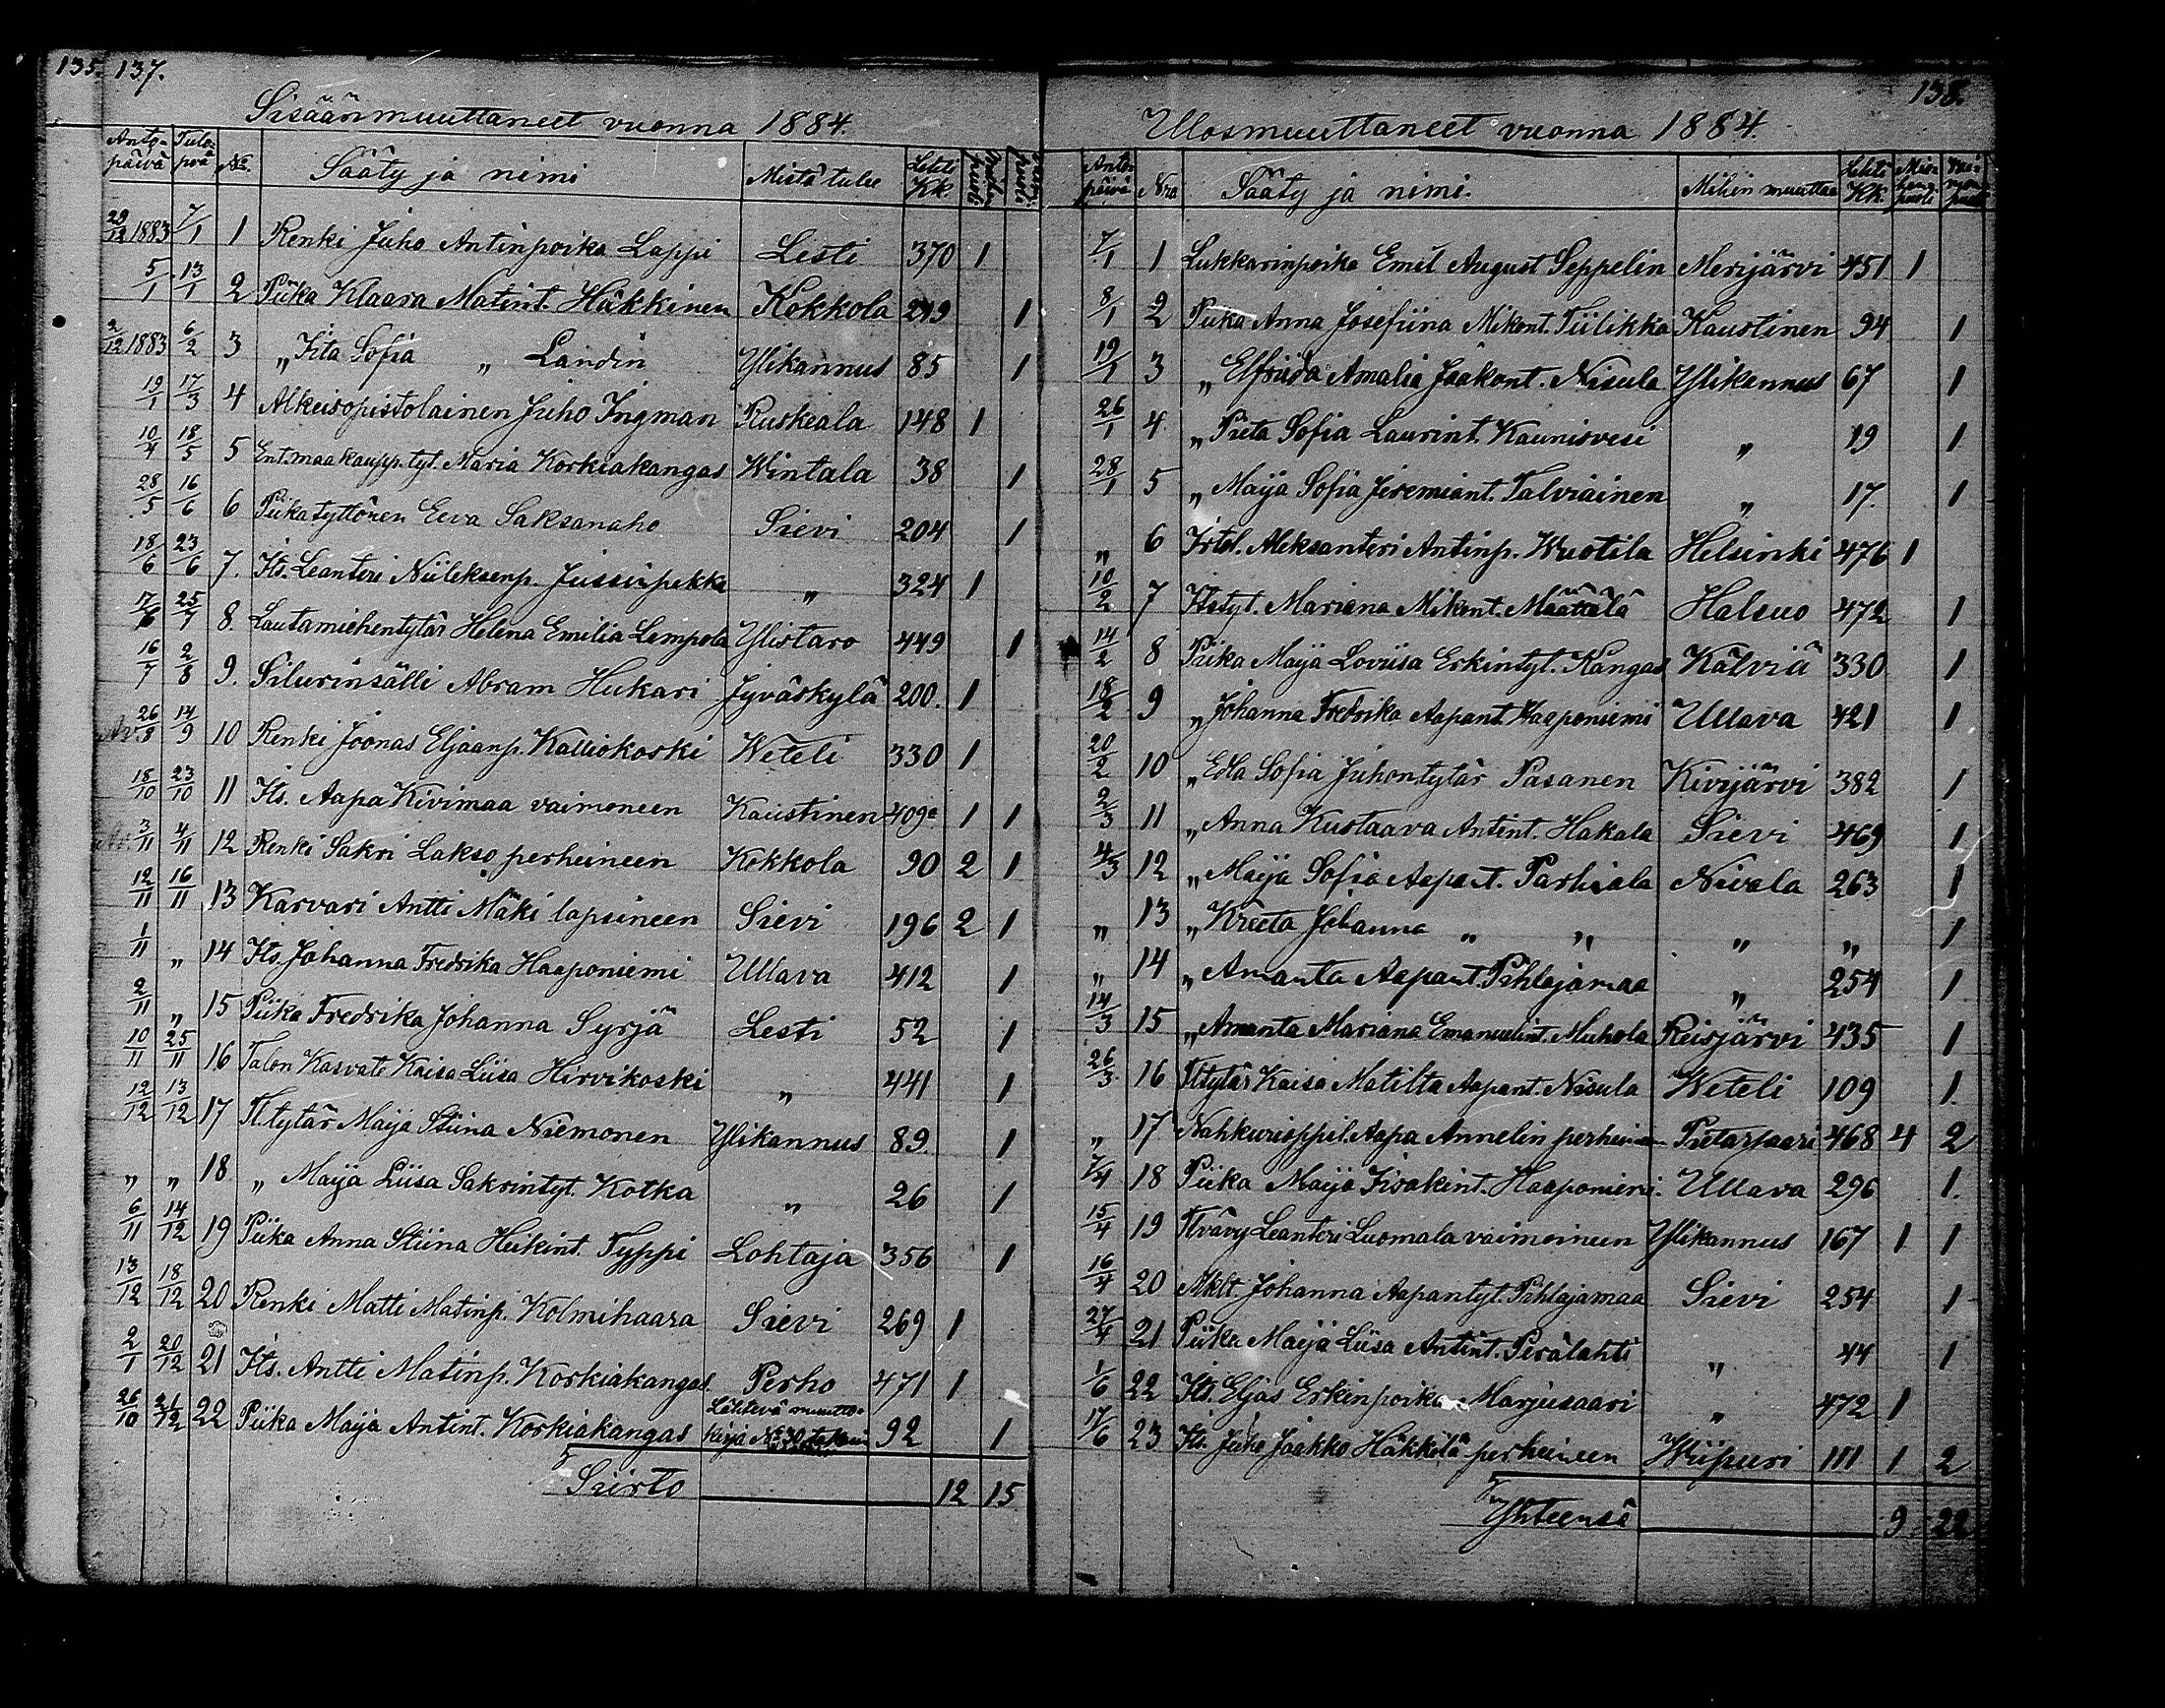 135. 137.
Sisäänmuuttaneet vuonna 1884.
Anto-päivä Tulo-pvä No. Sääty ja nimi Mistä tulee Lehti Kk.
29/12 1883 7/1 1 Renki Juho Antinpoika Lappi Lesti 370 1
5/1 13/1 2 Piika Klaara Matint. Häkkinen Kokkola 249 1
2/12 1883 6/2 3 „ Iita Sofia „ Landin Ylikannus 85 1
19/1 17/3 4 Alkeisopistolainen Juho Ingman Ruskeala 148 1
10/4 18/5 5 Ent. maakaupp. tyt. Maria Korkiakangas Wintala 38 1
28/5 16/6 6 Piikatyttönen Eeva Saksanaho Sievi 204 1
18/6 23/6 7. Its. Leanteri Niileksenp. Jussinpekka „ 324 1
17/6 25/7 8. Lautamiehentytär Helena Emilia Lempola Ylistaro 449 1
16/7 2/8 9. Silurinsälli Abram Hukari Jyväskylä 200. 1
26/8 14/9 10 Renki Joonas Eljaanp. Kalliokoski Weteli 330 1
18/10 23/10 11 Its. Aapa Kivimaa vaimoneen Kaustinen 409a 1 1
3/11 4/11 12 Renki Sakri Lakso perheineen Kokkola 90 2 1
12/11 16/11 13 Karvari Antti Mäki lapsineen Sievi 196 2 1
1/11 „ 14 Its. Johanna Fredrika Haaponiemi Ullava 412 1
2/11 „ 15 Piika Fredrika Johanna Syrjä Lesti 52 1
10/11 25/11 16 Talon Kasvate Kaisa Liisa Hirvikoski „ 441 1
12/12 13/12 17 Tl.tytär Maija Stiina Niemonen Ylikannus 89. 1
„ „ 18 „ Maija Liisa Sakrintyt. Kotka „ 26 1
6/11 14/12 19 Piika Anna Stiina Heikint. Typpi Lohtaja 356 1
13/12 18/12 20 Renki Matti Matinp. Kolmihaara Sievi 269 1
2/1 20/12 21 Its. Antti Matinp. Korkiakangas. Perho 471 1
26/10 21/12 22 Piika Maija Antint. Korkiakangas Lähtevä muutto-kirja No 30 takaisin 92 1
Siirto 12 15
138.
Ulosmuuttaneet vuonna 1884.
Anto-päivä Nro Sääty ja nimi. Mihin muuttaa Lehti Kk. Miehenpuoli Vaimonpuoli
7/1 1 Lukkarinpoika Emil August Seppelin Merijärvi 451 1
8/1 2 Piika Anna Josefiina Mikont. Tiilikka Kaustinen 94 1
19/1 3 „ Elfriida Amalia Jaakont. Nisula Ylikannus 67 1
26/1 4 „ Pieta Sofia Laurint. Kaunisvesi „ 19 1
28/1 5 „ Maija Sofia Jeremiant. Talviainen „ 17. 1
„ 6 Irtol. Aleksanteri Antinp. Wuotila Helsinki 476 1
10/2 7 Itstyt. Mariana Mikont. Määttälä Halsuo 472 1
14/2 8 Piika Maija Loviisa Erkintyt. Kangas Kälviä 330 1
18/2 9 „ Johanna Fredrika Aapant. Haaponiemi Ullava 421 1
20/2 10 „ Edla Sofia Juhontytär Pasanen Kivijärvi 382 1
2/3 11 „ Anna Kustaava Antint. Hakala Sievi 469 1
4/3 12 „ Maija Sofia Aapant. Parhiala Nivala 263 1
„ 13 „ Kreeta Johanna „ „ „ „ 1
„ 14 „ Amanta Aapant. Pihlajamaa „ 254 1
14/3 15 „ Amanta Mariana Emanuelint. Muhola Reisjärvi 435 1
26/3 16 Tltytär Kaisa Matilta Aapant. Nisula Weteli 109 1.
„ 17 Nahkurioppil. Aapa Annelin perheineen Pietarsaari 468 4 2
7/4 18 Piika Maija Iisakint. Haaponiemi. Ullava 296 1.
15/4 19 Tlvävy Leanteri Luomala vaimoineen Ylikannus 167 1 1
16/4 20 Mklt. Johanna Aapantyt. Pihlajamaa Sievi 254 1
27/4 21 Piika Maija Liisa Antint. Perälahti „ 44 1
1/6 22 Its. Eljas Erkinpoika Marjusaari „ 472 1
17/6 23 Its. Juho Jaakko Häkkilä perheineen Wiipuri 111 1 2
Yhteensä 9 22